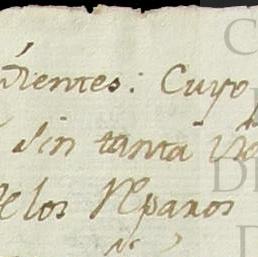 dientes: Cuyo
sin tanta
de los Reparos